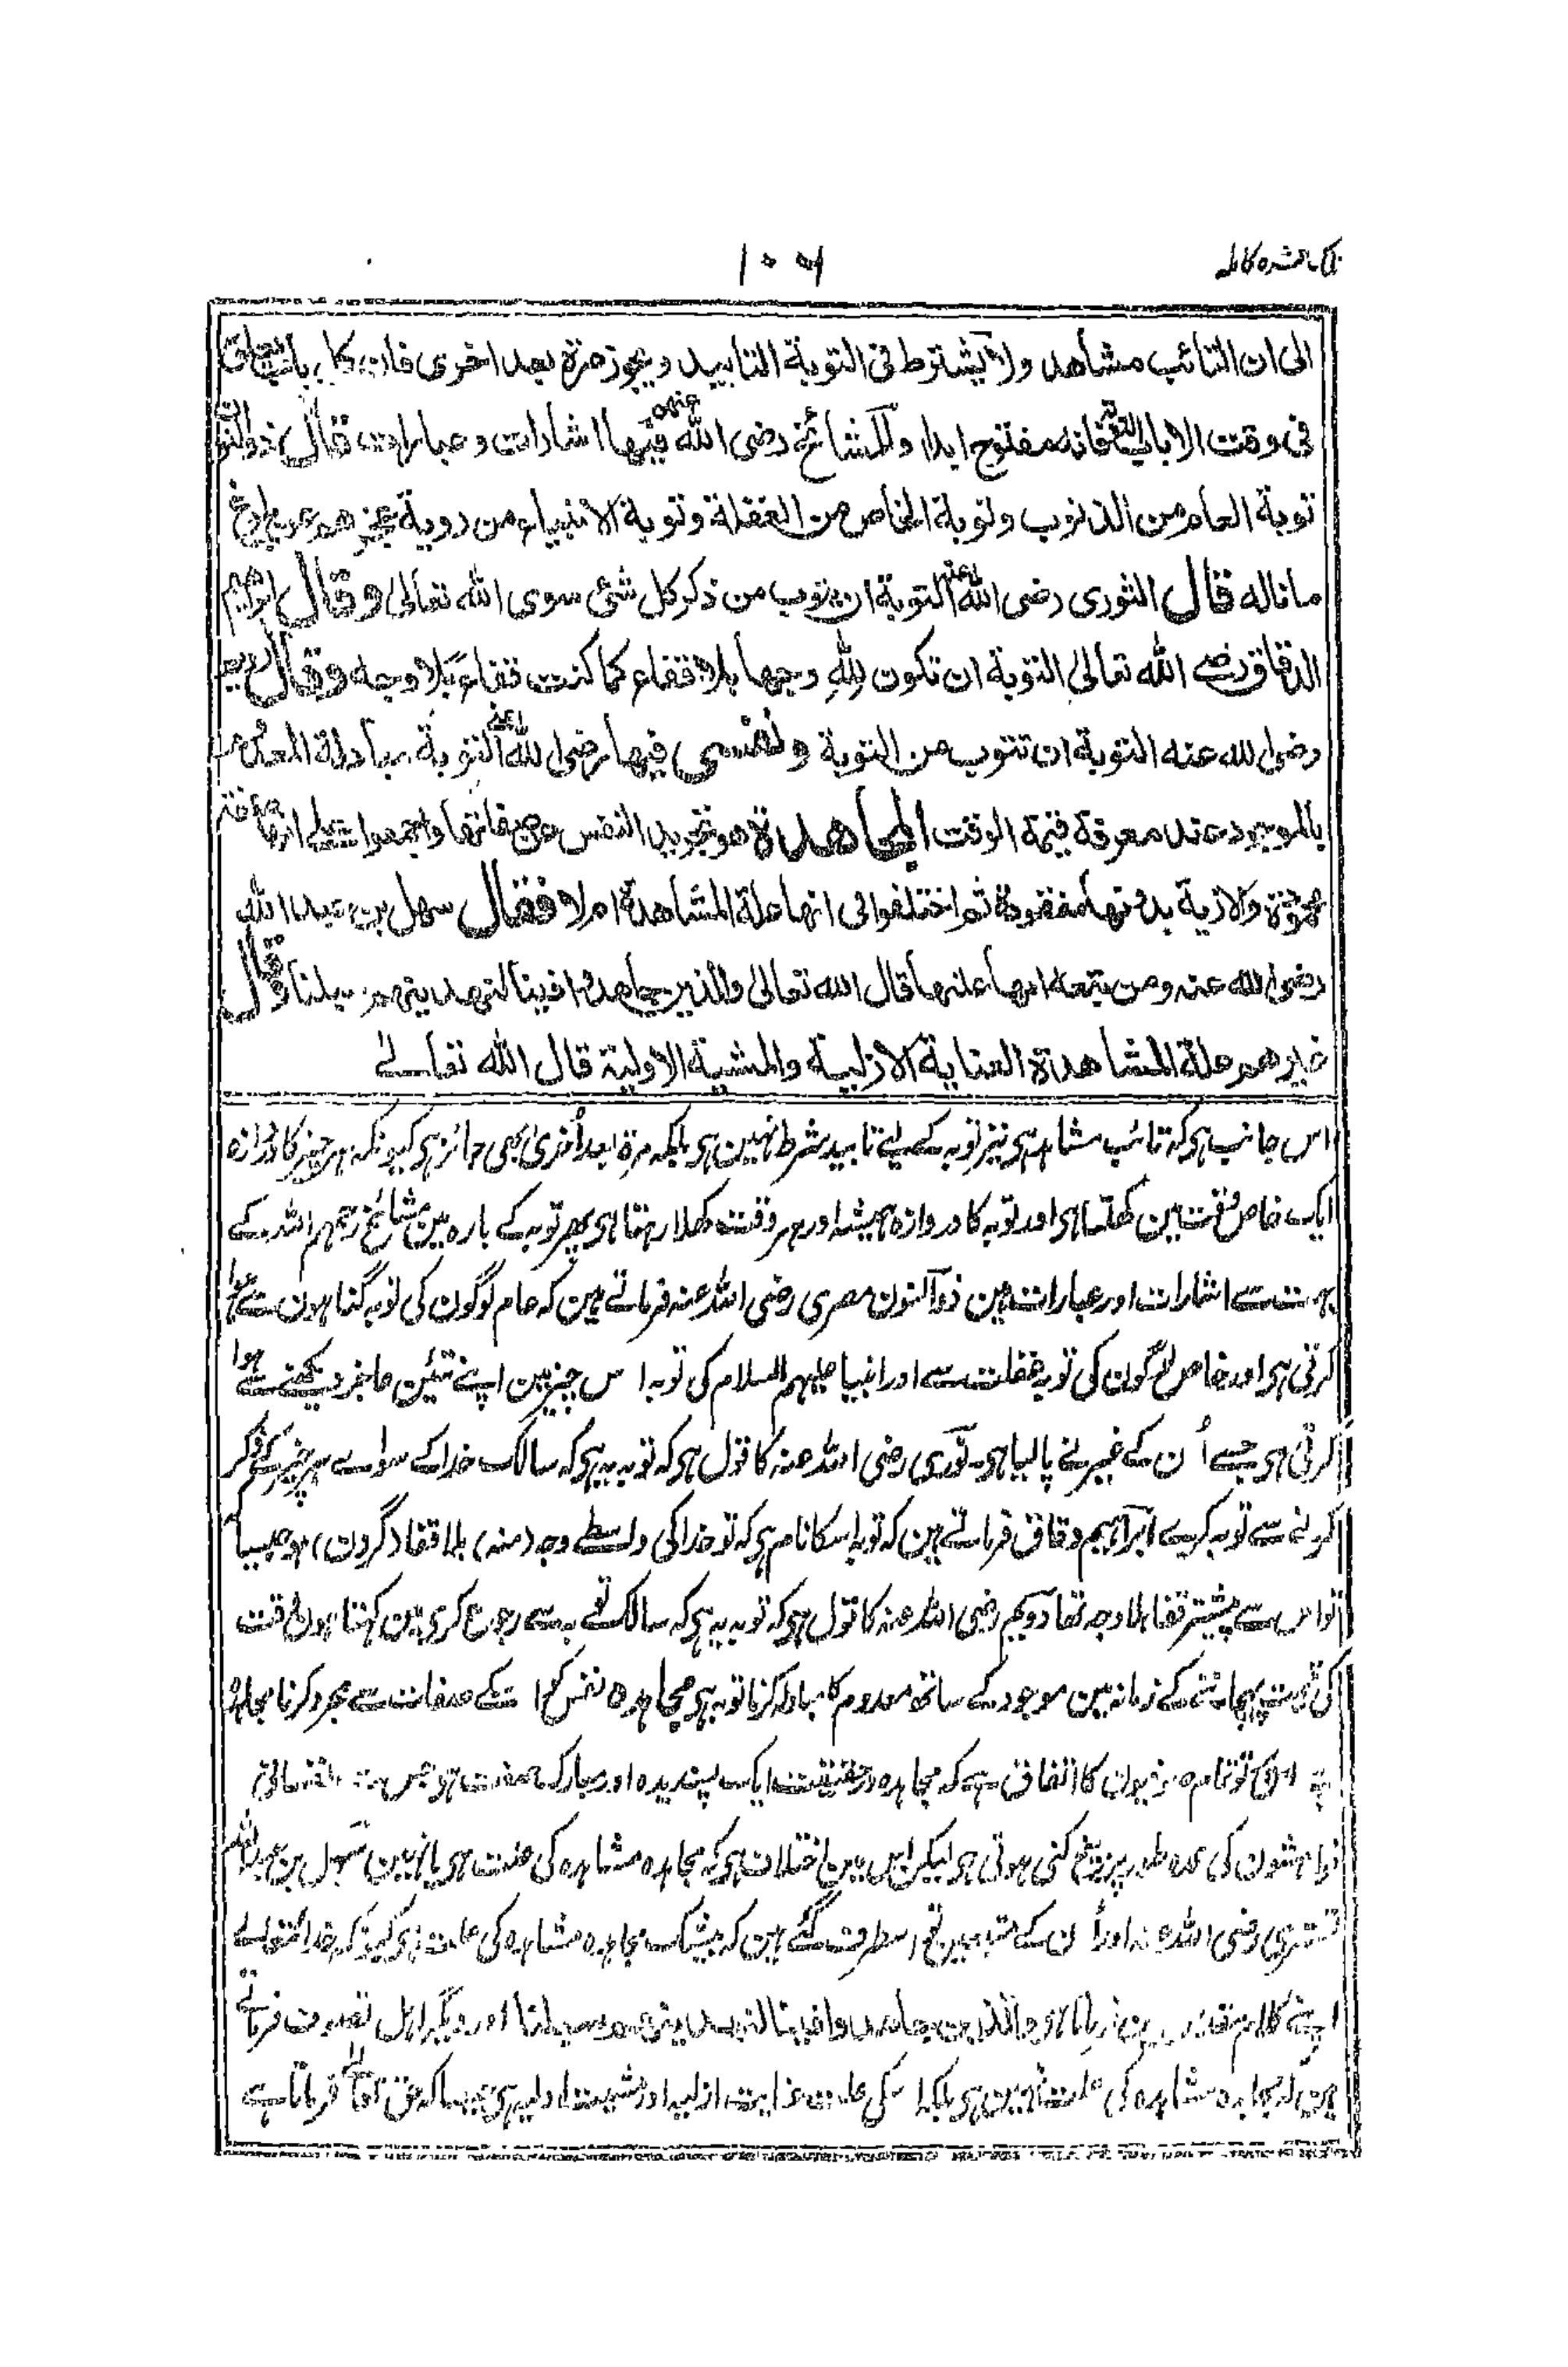 عشره کامله
۱۰۶
الی ان التائب مشاهد ولا یشترط فی التوبة التابید ویجوز مرة بعد اخری فان کل باب
فی وقت الا باب التوبة فانه مفتوح ابدا وللمشائخ رضی الله عنهم فیها اشارات وعبارات قال ذوالنون
توبة العام من الذنوب وتوبة الخاص من الغفلة وتوبة الانبیاء من رویة عجزهم عن بلوغ
ما ناله قال النوری رضی الله عنه التوبة ان یتوب من ذکر کل شئ سوی الله تعالی وقال ابراهیم
الدقاق رضے الله تعالی التوبة ان تکون لله وجها بلا قفاء کما کنت قفاء بلا وجه وقال رویم
رضی الله عنه التوبة ان تتوب من التوبة ونفسی فیها رضی الله عنه التوبة مبادلة المعدوم
بالموجود عند معرفة قیمة الوقت المجاهدة هو تجرید النفس عن صفاتها واجمعوا علے انها
بدونها مفقودة ثم اختلفوا فی انها علة المشاهدة ام لا فقال سهل بن عبد الله
رضی الله عنه ومن یتبعه انها علتها قال الله تعالی والذین جاهدوا فینا لنهدینهم سبلنا وقال
غیرهم علة المشاهدة العنایة الازلیة والمشیة الاولیة قال الله تعالے
اس جانب ہی کہ تائب مشاہد ہی نیز توبہ کے لیے تابید شرط نہین ہی بلکہ مرة بعد اُخریٰ بھی جائز ہی کیونکہ ہر چیز کا دروازہ
ایک خاص وقت مین کھلتا ہی اور توبہ کا دروازہ ہمیشہ اور ہر وقت کھلا رہتا ہی پھر توبہ کے بارہ مین مشائخ رحمہم اللہ کے
بہت سے اشارات اور عبارات ہین ذوالنون مصری رضی اللہ عنہ فرماتے ہین کہ عام لوگون کی توبہ گناہون سے ہوا
کرتی ہی اور خاص لوگون کی توبہ غفلت سے اور انبیا علیہم السلام کی توبہ اس چیز مین اپنے تئین عاجز دیکھنے سے ہوا
کرتی ہی جسے اُن کے غیر نے پالیا ہی۔ نوری رضی اللہ عنہ کا قول ہی کہ توبہ یہ ہی کہ سالک خدا کے سوا ہر چیز کے ذکر
کرنے سے توبہ کرے ابراہیم دقاق فرماتے ہین کہ توبہ اسکا نام ہی کہ تو خدا کی واسطے وجہ (منہ) بلا قفا (گردن) ہو جیسا
تو اس سے پیشتر قفا بلا وجہ تھا رویم رضی اللہ عنہ کا قول ہی کہ توبہ یہ ہی کہ سالک توبہ سے رجوع کرے مین کہتا ہون وقت
کی قیمت پہچاننے کے زمانہ مین موجود کے ساتھ معدوم کا مبادلہ کرنا توبہ ہی مجاہدہ نفس کو اسکے صفات سے مجرد کرنا مجاہدہ
ہے اس پر تو تمام صوفیون کا اتفاق ہے کہ مجاہدہ درحقیقت ایک پسندیدہ اور مبارک صفت ہی جس سے نفسانی
خواہشون کی عمدہ طور پر بیخ کنی ہوتی ہی لیکن اس مین اختلاف ہی کہ مجاہدہ مشاہدہ کی علت ہی یا نہین سہل بن عبداللہ
تستری رضی اللہ عنہ اور اُن کے متبعین تو اسطرف گئے ہین کہ بیشک مجاہدہ مشاہدہ کی علت ہی کیونکہ خدا تعالے
اپنے کلام مقدس مین فرماتا ہی والذین جاهدوا فینا لنهدینهم سبلنا اور دیگر اہل تصوف فرماتے
ہین کہ مجاہدہ مشاہدہ کی علت نہین ہی بلکہ اسکی علت عنایت ازلیہ اور مشیت اولیہ ہی جیسا کہ حق تعالیٰ فرماتا ہے